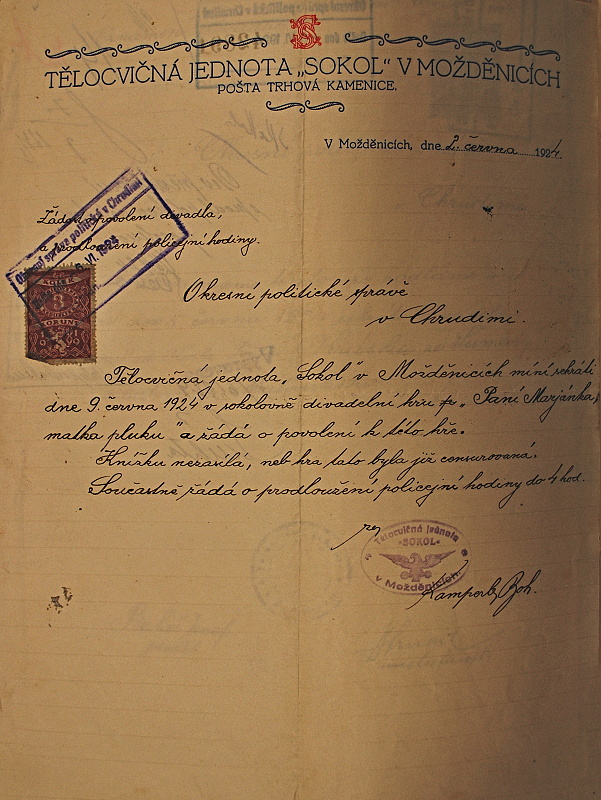 TĚLOCVIČNÁ JEDNOTA „SOKOL" V MOŽDĚNICÍCH
POŠTA TRHOVÁ KAMENICE.
V Možděnicích, dne 2. června 1924.
Okresní správa politická v Chrudimi
6. VI. 1924
Žádost o povolení divadla,
a prodloužení policejní hodiny.
Okresní politické správě
v Chrudimi.
Tělocvičná jednota „Sokol" v Možděnicích míní sehráti
dne 9. června 1924 v sokolovně divadelní hru „Paní Marjánka,
matka pluku" a žádá o povolení k této hře.
Knížku nezasílá, neb hra tato byla již censurovaná.
Současně žádá o prodloužení policejní hodiny do 4 hod.
Tělocvičná jednota
"SOKOL"
v Možděnicích.